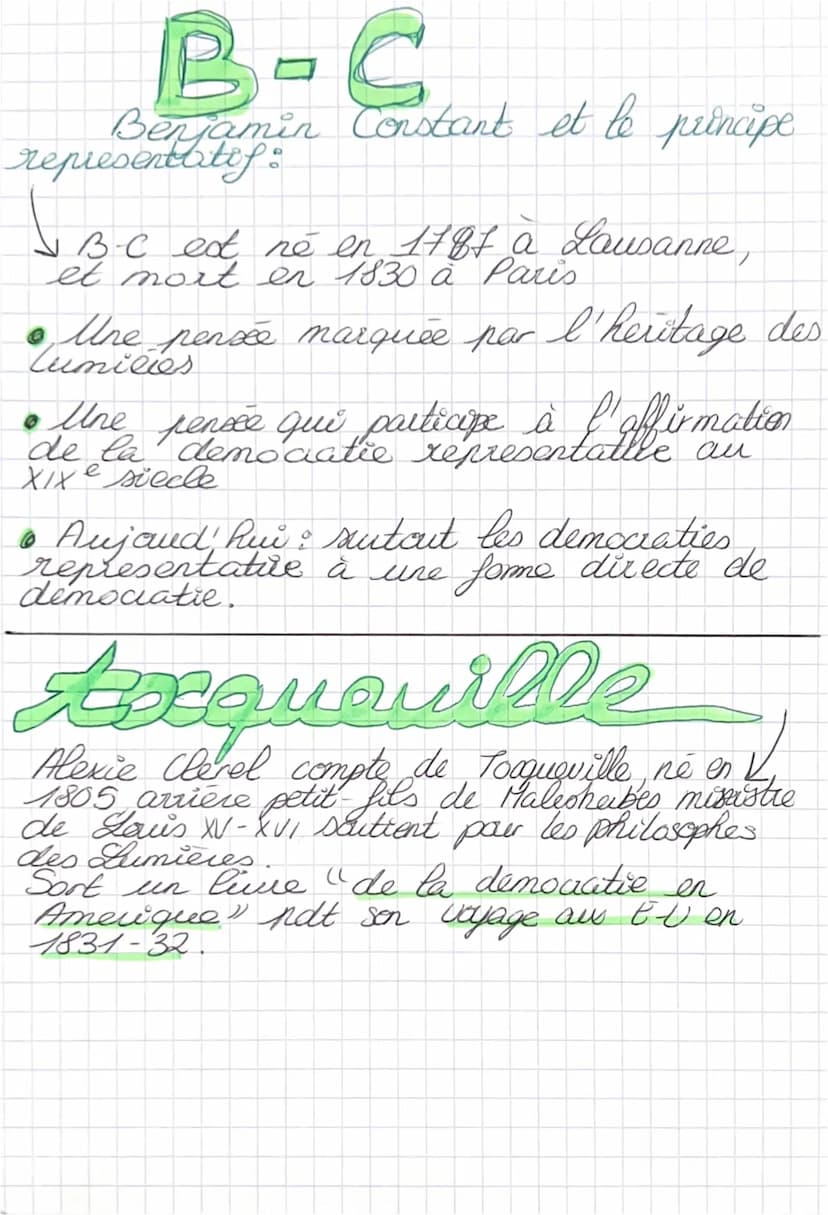 B-C
Benjamin Constant et le principe
representatif:
B-C est né en 1787 à Lausanne,
et mort en 1830 à Paris
• Une pensée marquée par l'heritage des
Lumières
• Une pensée qui participe à l'affirmation
de la democratie representative au
XIXe siecle
• Aujoud'hui: surtout les democraties
representative à une forme directe de
democratie.
tocqueville
Alexie Clerel compte de Tocqueville, né en
1805 arrière petit-fils de Malesherbes ministre
de Louis XV-XVI souttent pour les philosophes
des Lumières.
Sort un livre "de la democratie en
Amerique" pdt son voyage aux E-U en
1831-32.